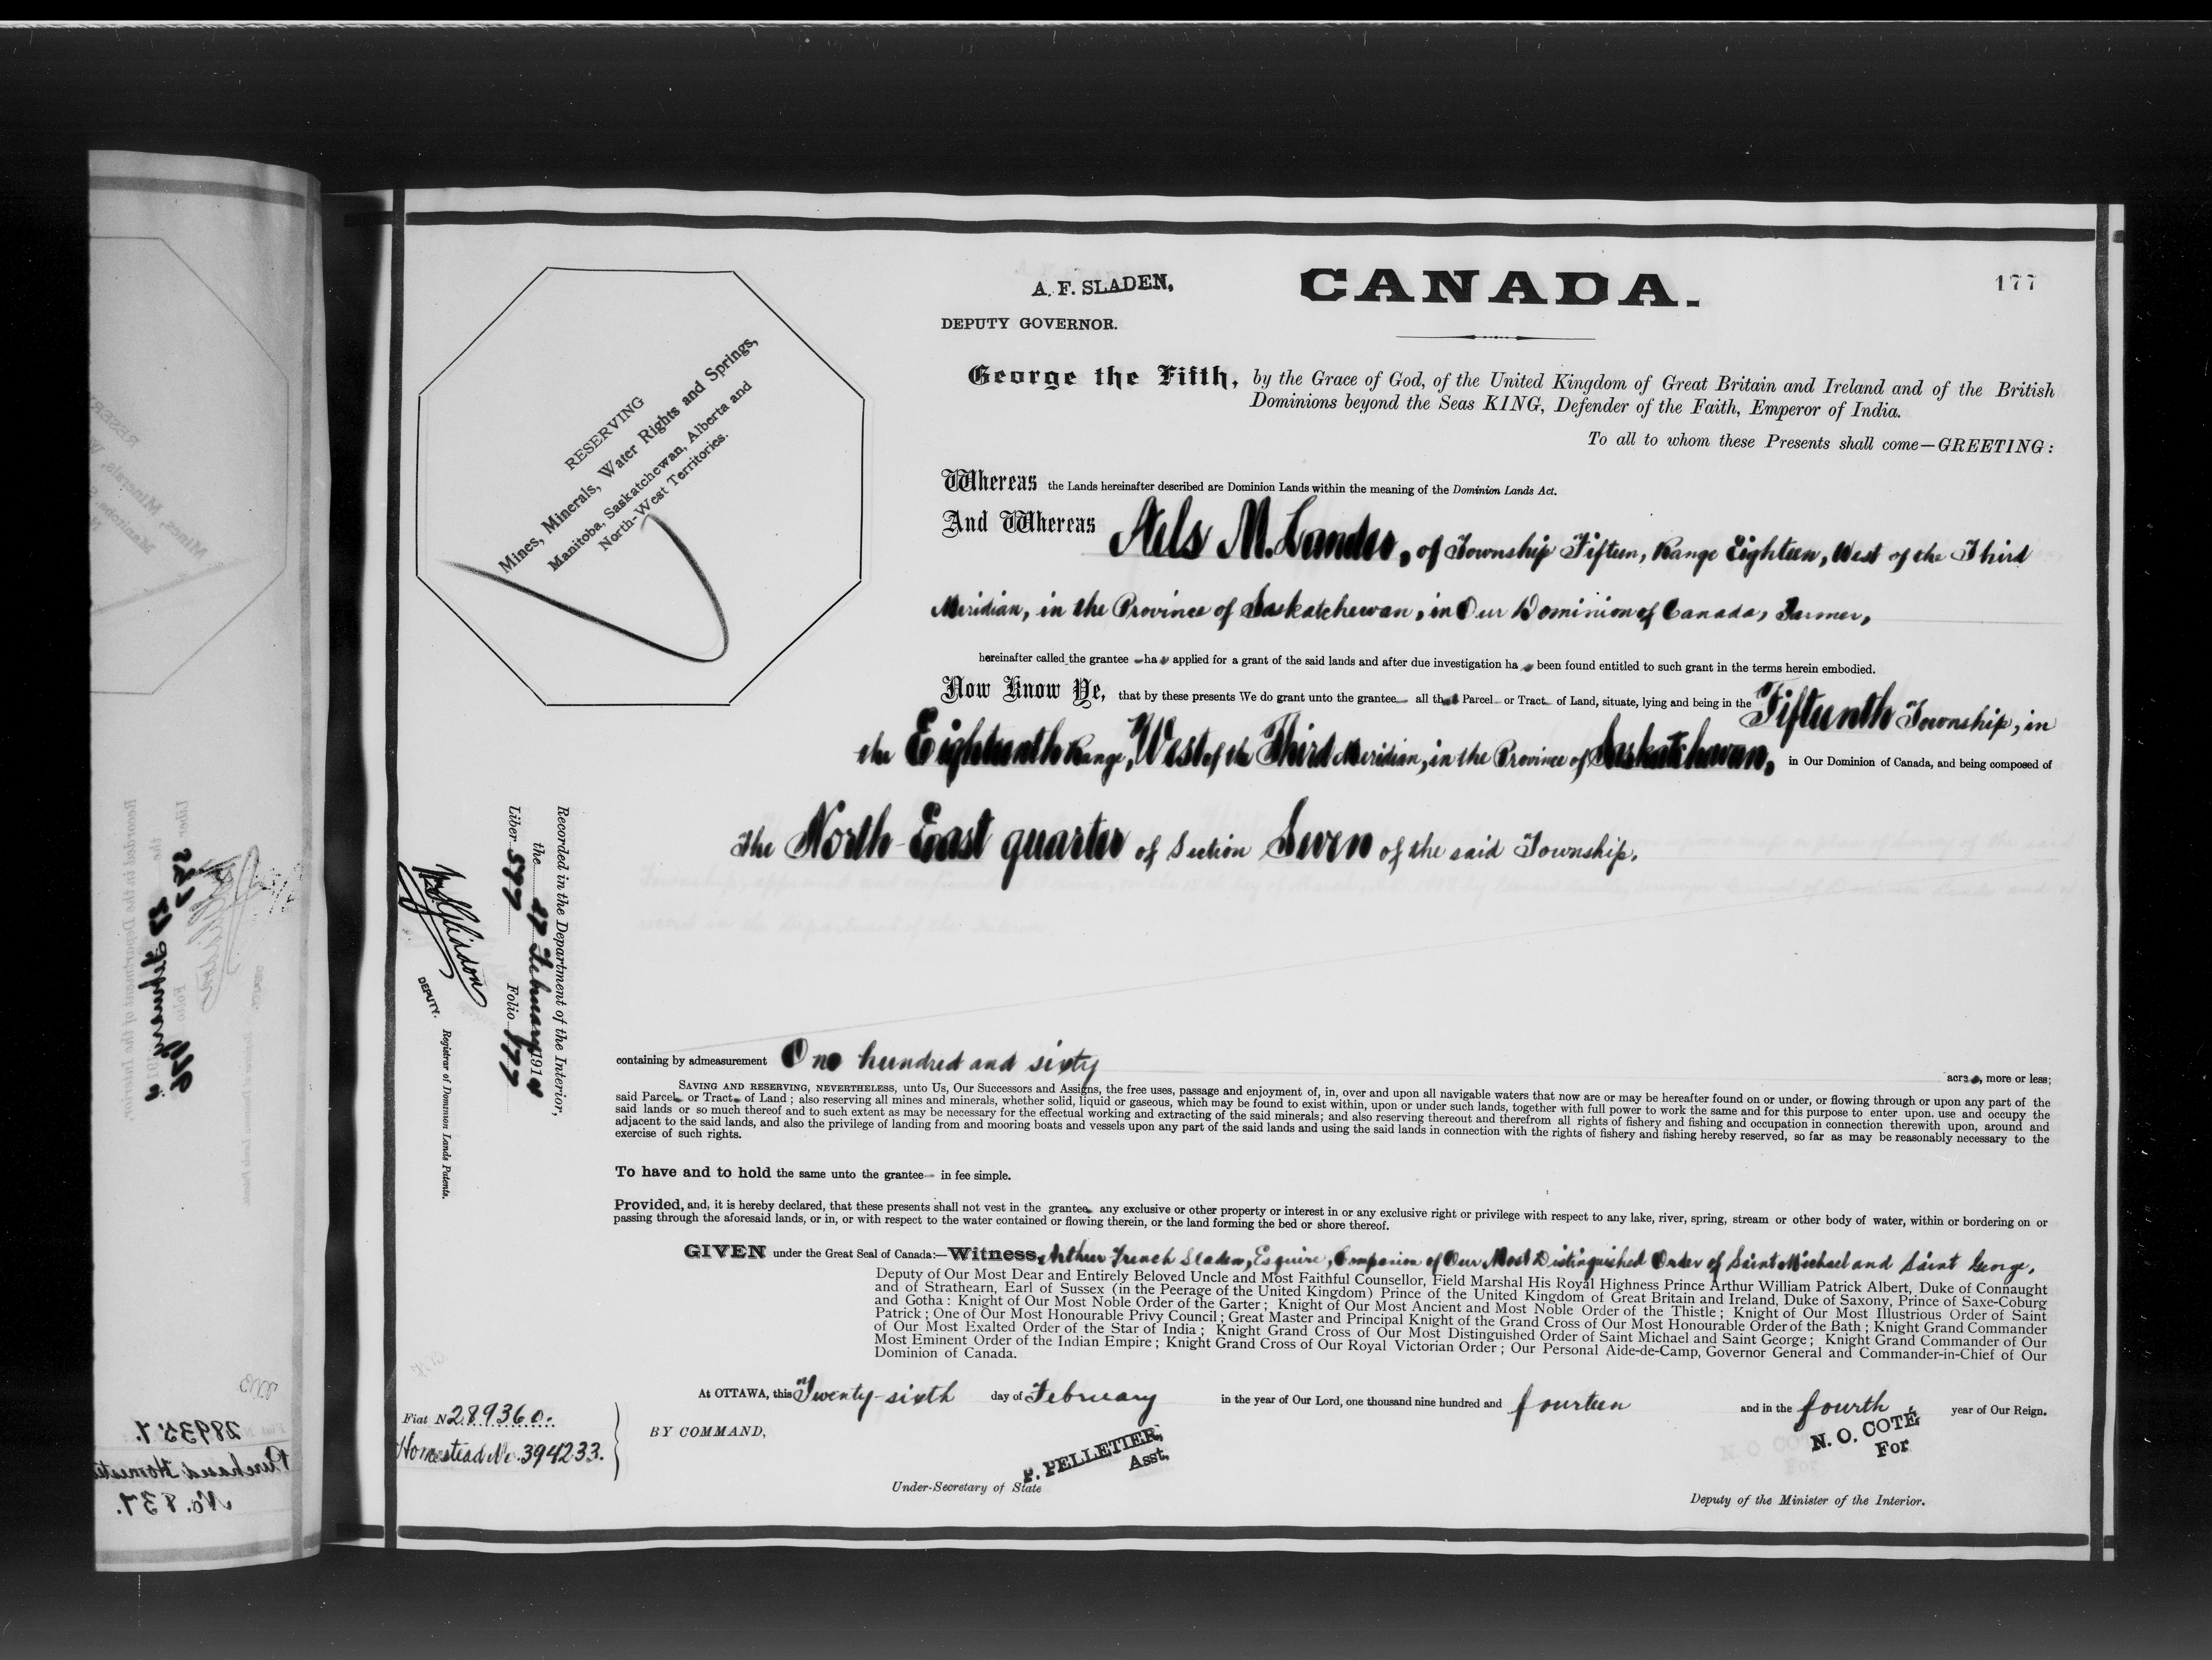 177
A. F. SLADEN,
DEPUTY GOVERNOR.
CANADA.
RESERVING
Mines, Minerals, Water Rights and Springs,
Manitoba, Saskatchewan, Alberta and
North-West Territories.
George the Fifth, by the Grace of God, of the United Kingdom of Great Britain and Ireland and of the British
Dominions beyond the Seas KING, Defender of the Faith, Emperor of India.
To all to whom these Presents shall come—GREETING:
Whereas the Lands hereinafter described are Dominion Lands within the meaning of the Dominion Lands Act.
And Whereas M. , of Township Fifteen, Range Eighteen, West of the Third
Meridian, in the Province of Saskatchewan, in Our Dominion of Canada, Farmer,
hereinafter called the grantee has applied for a grant of the said lands and after due investigation has been found entitled to such grant in the terms herein embodied.
Now Know Ye, that by these presents We do grant unto the grantee all that Parcel or Tract of Land, situate, lying and being in the Fifteenth Township, in
the Eighteenth Range, West of the Third Meridian, in the Province of Saskatchewan, in Our Dominion of Canada, and being composed of
The North-East quarter of Section Seven of the said Township.
Recorded in the Department of the Interior,
the 27 February 1914
Liber 577 Folio 177
DEPUTY. Registrar of Dominion Lands Patents.
containing by admeasurement One hundred and sixty acres, more or less;
SAVING AND RESERVING, NEVERTHELESS, unto Us, Our Successors and Assigns, the free uses, passage and enjoyment of, in, over and upon all navigable waters that now are or may be hereafter found on or under, or flowing through or upon any part of the
said Parcel or Tract of Land ; also reserving all mines and minerals, whether solid, liquid or gaseous, which may be found to exist within, upon or under such lands, together with full power to work the same and for this purpose to enter upon, use and occupy the
said lands or so much thereof and to such extent as may be necessary for the effectual working and extracting of the said minerals; and also reserving thereout and therefrom all rights of fishery and fishing and occupation in connection therewith upon, around and
adjacent to the said lands, and also the privilege of landing from and mooring boats and vessels upon any part of the said lands and using the said lands in connection with the rights of fishery and fishing hereby reserved, so far as may be reasonably necessary to the
exercise of such rights.
To have and to hold the same unto the grantee in fee simple.
Provided, and, it is hereby declared, that these presents shall not vest in the grantee any exclusive or other property or interest in or any exclusive right or privilege with respect to any lake, river, spring, stream or other body of water, within or bordering on or
passing through the aforesaid lands, or in, or with respect to the water contained or flowing therein, or the land forming the bed or shore thereof.
GIVEN under the Great Seal of Canada:—Witness, Arthur French Sladen, Esquire, Companion of Our Most Distinguished Order of Saint Michael and Saint George,
Deputy of Our Most Dear and Entirely Beloved Uncle and Most Faithful Counsellor, Field Marshal His Royal Highness Prince Arthur William Patrick Albert, Duke of Connaught
and of Strathearn, Earl of Sussex (in the Peerage of the United Kingdom) Prince of the United Kingdom of Great Britain and Ireland, Duke of Saxony, Prince of Saxe-Coburg
and Gotha : Knight of Our Most Noble Order of the Garter ; Knight of Our Most Ancient and Most Noble Order of the Thistle ; Knight of Our Most Illustrious Order of Saint
Patrick ; One of Our Most Honourable Privy Council ; Great Master and Principal Knight of the Grand Cross of Our Most Honourable Order of the Bath ; Knight Grand Commander
of Our Most Exalted Order of the Star of India ; Knight Grand Cross of Our Most Distinguished Order of Saint Michael and Saint George ; Knight Grand Commander of Our
Most Eminent Order of the Indian Empire ; Knight Grand Cross of Our Royal Victorian Order ; Our Personal Aide-de-Camp, Governor General and Commander-in-Chief of Our
Dominion of Canada.
At OTTAWA, this Twenty-sixth day of February in the year of Our Lord, one thousand nine hundred and fourteen and in the fourth year of Our Reign.
Fiat No 289360.
Homestead No. 394233.
BY COMMAND,
P. PELLETIER,
Asst.
Under-Secretary of State
N. O. COTÉ
For
Deputy of the Minister of the Interior.
289357.
Purchased Homeste
No. 837.